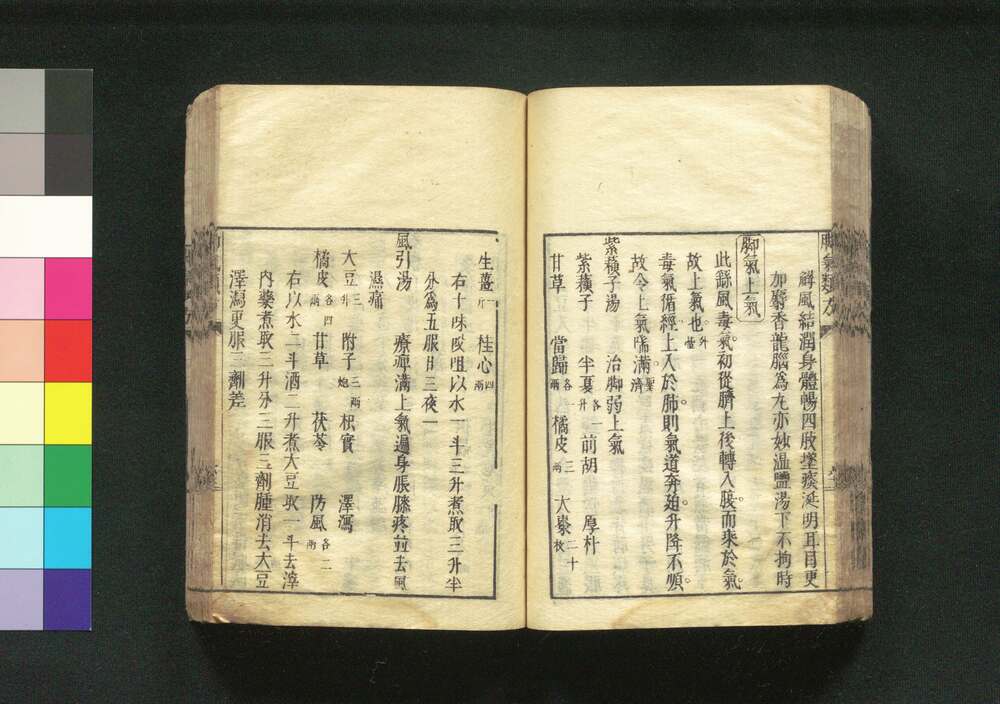 解風結潤身體暢四肢墜痰涎明耳目更
加麝香龍腦為丸亦妙温鹽湯下不拘時
脚氣上氣
此繇風毒氣初從臍上後轉入腹而乗於氣
故上氣也
毒氣循經上入於肺則氣道奔廹升降不順
故令上氣喘滿
紫蘓子湯 治脚弱上氣
紫蘓子 半夏各一升 前胡 厚朴
甘草 當歸各一兩 橘皮三兩 大棗二十枚
生薑一斤 桂心四兩
右十味㕮咀以水一斗三升煮取三升半
分為五服日三夜一
風引湯 療痺滿上氣過身脹膝疼並去風
濕痛
大豆三升 附子三兩炮 枳實 澤瀉
橘皮各四兩 甘草 茯苓 防風各二兩
右以水二斗酒二升煮大豆取一斗去滓
内藥煮取三升分三服三劑腫消去大豆
澤瀉更服三劑差